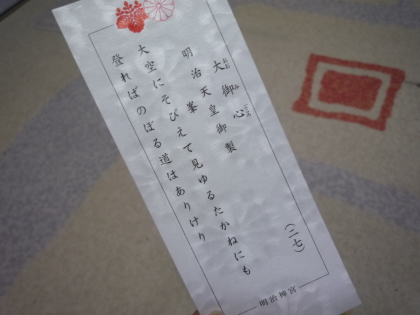 大御心
おお み ごころ
明治天皇御製
峯
大空にそびえて見ゆるたかねにも
登ればのぼる道はありけり
(二七)
明治神宮